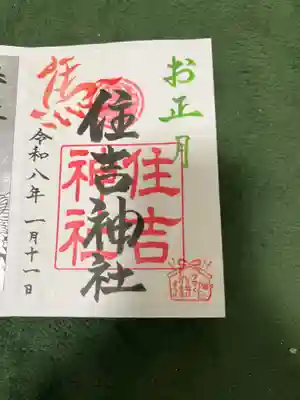 お正月
住吉神社
住吉
神社
馬
令和八年 一月十一日